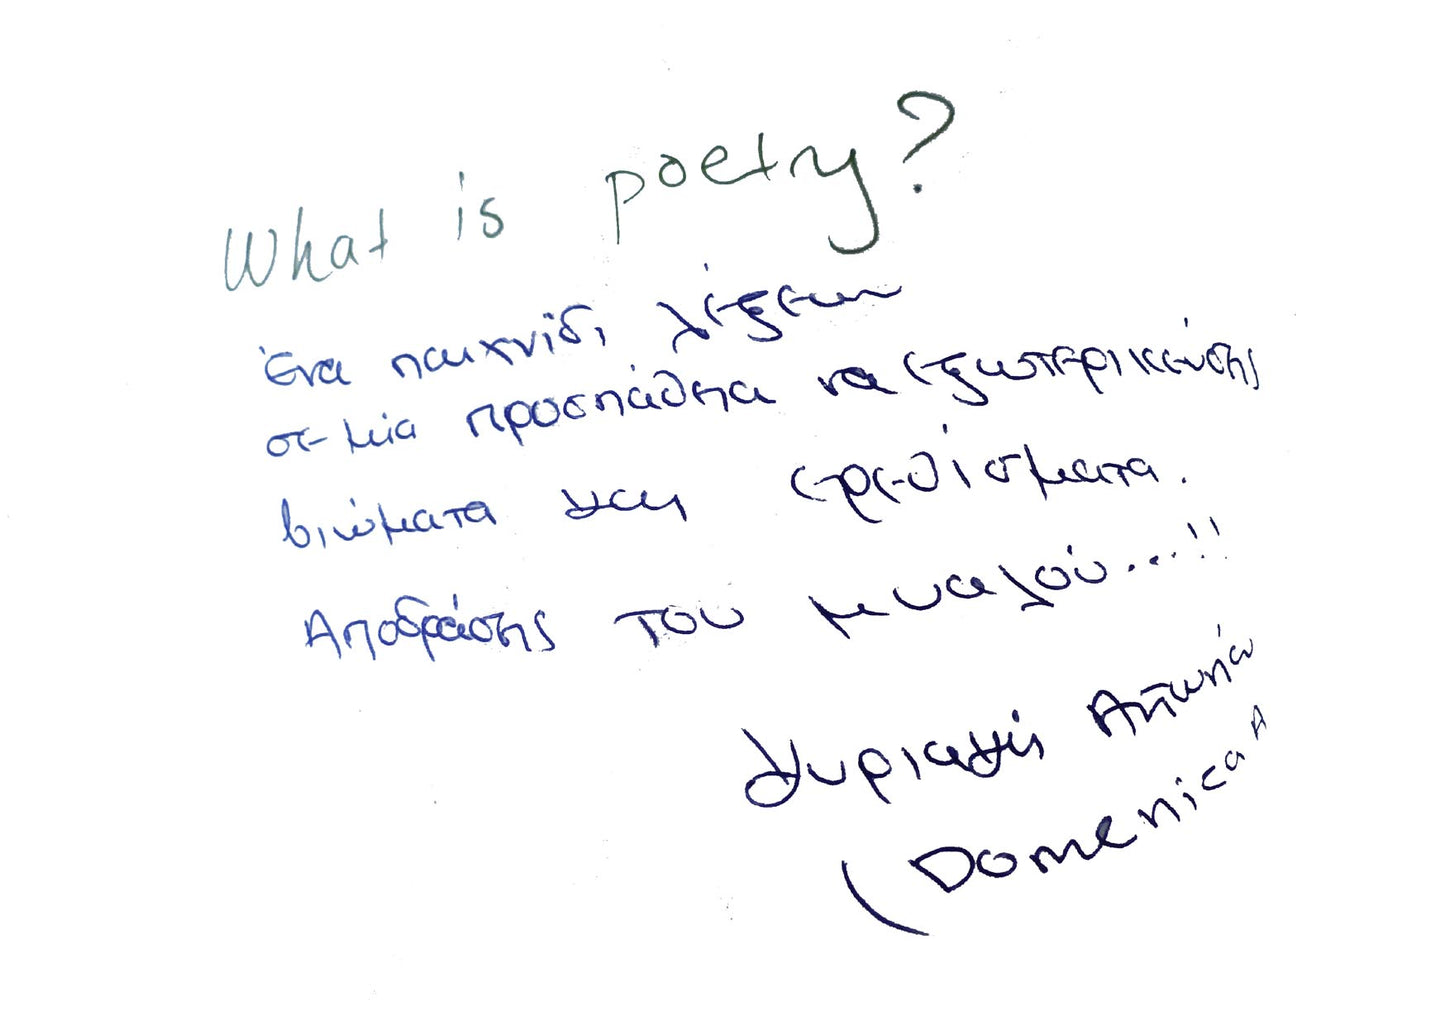 What is poetry?
Ένα παιχνίδι λέξεων
σε μία προσπάθεια να εξωτερικεύσεις
βιώματα και ερεθίσματα.
Αποδράσεις του μυαλού...!!
Κυριακή Αντωνία
(Domenica A